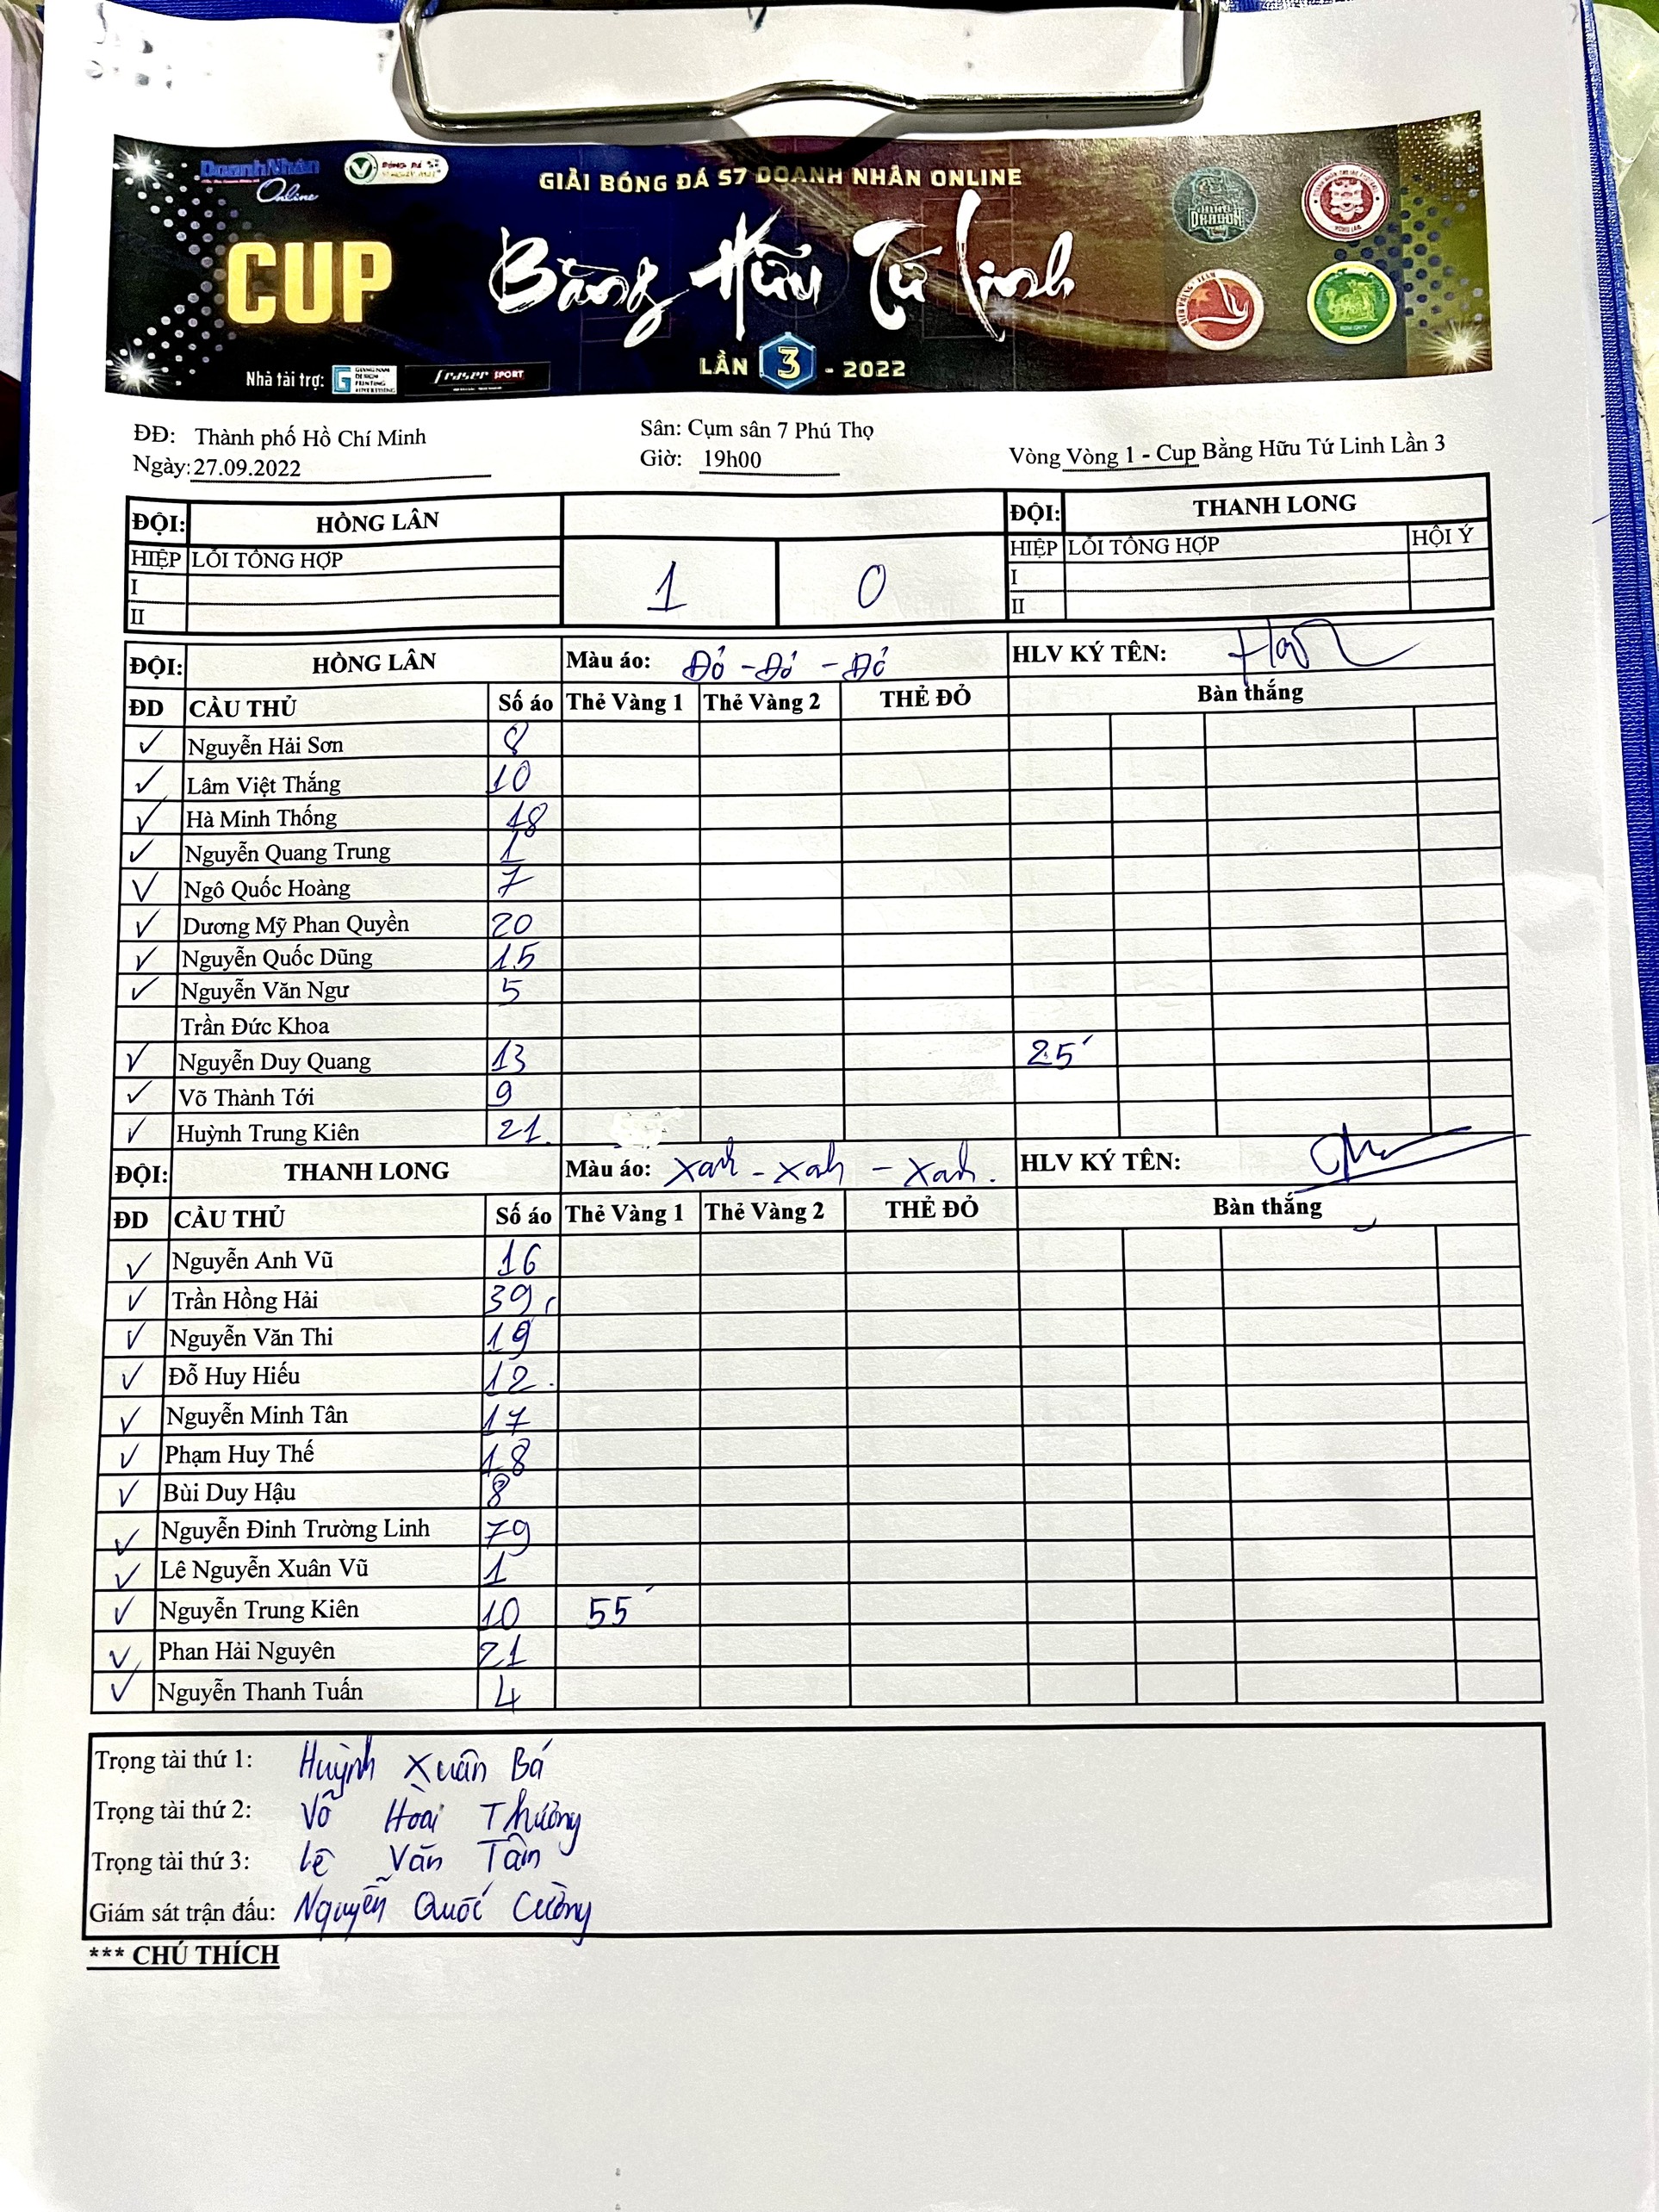 DoanhNhân
Online
GIẢI BÓNG ĐÁ S7 DOANH NHÂN ONLINE
CUP Bằng Hữu Tứ Linh
LẦN 3 - 2022
Nhà tài trợ: fraser SPORT
DRAGON
ĐĐ: Thành phố Hồ Chí Minh Sân: Cụm sân 7 Phú Thọ
Ngày: 27.09.2022 Giờ: 19h00 Vòng Vòng 1 - Cup Bằng Hữu Tứ Linh Lần 3
ĐỘI: HỒNG LÂN ĐỘI: THANH LONG
HIỆP LỖI TỔNG HỢP 1 0 HIỆP LỖI TỔNG HỢP HỘI Ý
I I
II II
ĐỘI: HỒNG LÂN Màu áo: Đỏ - Đỏ - Đỏ HLV KÝ TÊN:
ĐD CẦU THỦ Số áo Thẻ Vàng 1 Thẻ Vàng 2 THẺ ĐỎ Bàn thắng
✓ Nguyễn Hải Sơn 8
✓ Lâm Việt Thắng 10
✓ Hà Minh Thống 18
✓ Nguyễn Quang Trung 1
✓ Ngô Quốc Hoàng 7
✓ Dương Mỹ Phan Quyền 20
✓ Nguyễn Quốc Dũng 15
✓ Nguyễn Văn Ngư 5
Trần Đức Khoa
✓ Nguyễn Duy Quang 13 25'
✓ Võ Thành Tới 9
✓ Huỳnh Trung Kiên 21.
ĐỘI: THANH LONG Màu áo: Xanh - Xanh - Xanh. HLV KÝ TÊN:
ĐD CẦU THỦ Số áo Thẻ Vàng 1 Thẻ Vàng 2 THẺ ĐỎ Bàn thắng
✓ Nguyễn Anh Vũ 16
✓ Trần Hồng Hải 39
✓ Nguyễn Văn Thi 19
✓ Đỗ Huy Hiếu 12.
✓ Nguyễn Minh Tân 17
✓ Phạm Huy Thế 18
✓ Bùi Duy Hậu 8
✓ Nguyễn Đinh Trường Linh 79
✓ Lê Nguyễn Xuân Vũ 1
✓ Nguyễn Trung Kiên 10 55'
✓ Phan Hải Nguyên 21
✓ Nguyễn Thanh Tuấn 4
Trọng tài thứ 1: Huỳnh Xuân Bá
Trọng tài thứ 2: Võ Hoài Thương
Trọng tài thứ 3: Lê Văn Tân
Giám sát trận đấu: Nguyễn Quốc Cường
*** CHÚ THÍCH